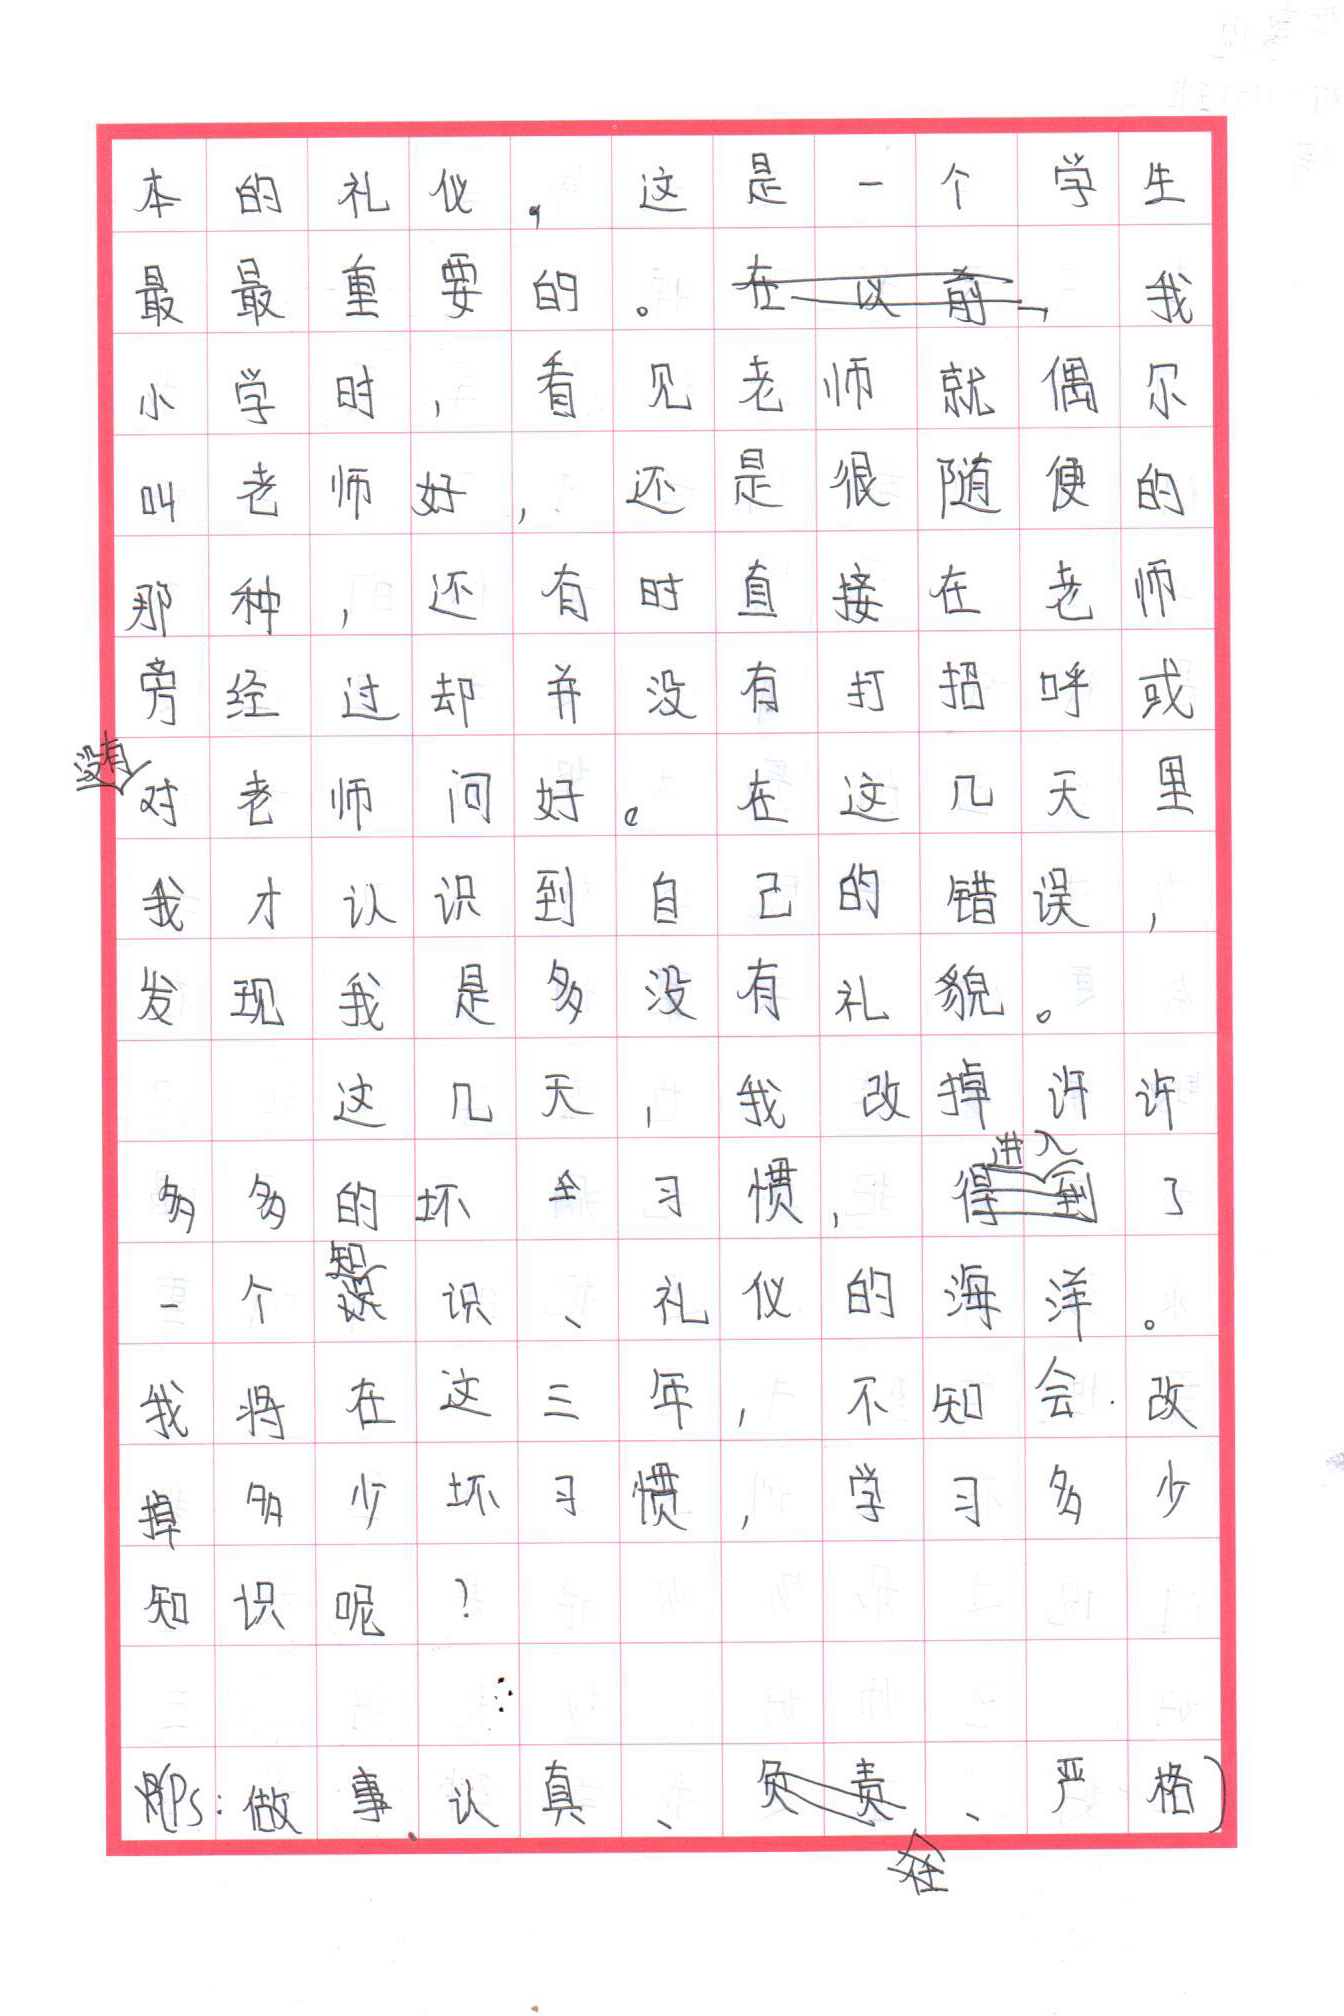 本的礼仪，这是一个学生
最最重要的。在以前，我
小学时，看见老师就偶尔
叫老师好，还是很随便的
那种，还有时直接在老师
旁经过却并没有打招呼或
没有
对老师问好。在这几天里
我才认识到自己的错误，
发现我是多没有礼貌。
这几天，我改掉许许
进入
多多的坏习惯，得到了
知
一个误识、礼仪的海洋。
我将在这三年，不知会改
掉多少坏习惯，学习多少
知识呢？
(Ps：做事认真、负责、严格)